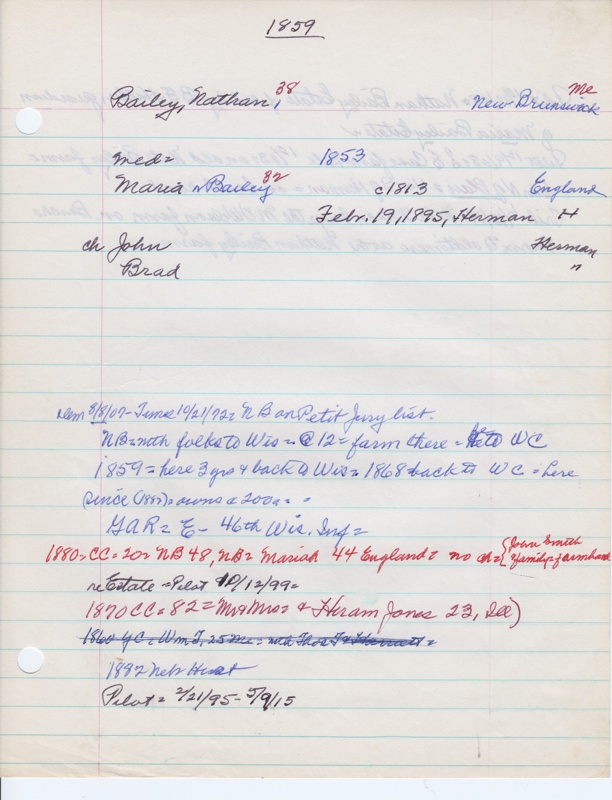 1859
Bailey, Nathan, 38 New Brunswick Me
med= 1853
Maria Bailey 32 c1813 England
Febr. 19, 1895, Herman H
ch John Herman
Brad "
Dem 8/8/07 - Times 10/21/72= NB on Petit Jury list.
NB= with folks to Wis= @ 12= farm there= to WC
1859= here 3 yrs & back to Wis= 1868 back to WC= here
since (1882)= owns a 200a= =
GAR= E- 46th Wis. Inf=
1880= CC= 20= NB 48, NB= Mariah 44 England= no ch= { John Smith
& family= farmhand
re Estate= Pilot 10/12/99=
1870 CC= 82= Mr & Mrs= & Hiram Jones 23, Ill)
1860 WC= Wm T, 25 Me= with Thos T & Harriett=
1882 Nebr Hist
Pilot= 2/21/95- 5/9/15